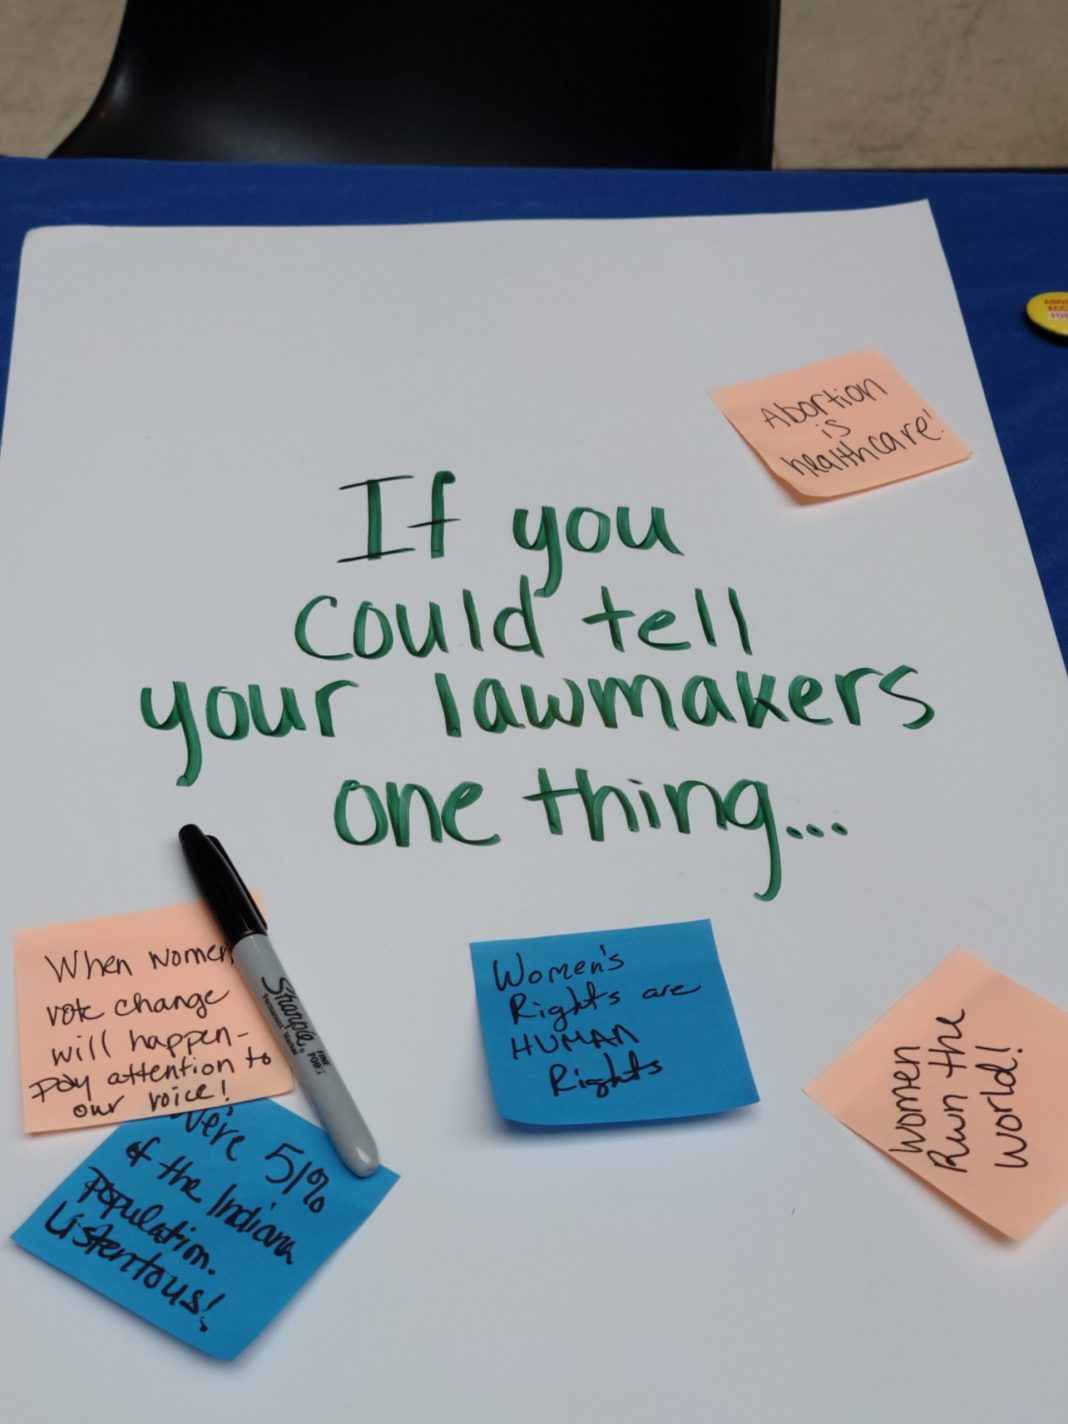 Abortion
is
healthcare!
If you
could tell
your lawmakers
one thing...
When women
vote change
will happen-
pay attention to
our voice!
Sharpie
FINE
POINT
Women's
Rights are
HUMAN
Rights
Women
Run the
World!
We're 51%
of the Indiana
population.
Listen to us!